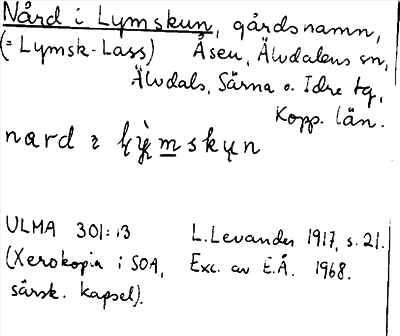 Nård i Lymskun, gårdsnamn,
(= Lymsk-Lass) Åsen, Älvdalens sn,
Älvdals, Särna o. Idre tg,
Kopp. län.
nard
ULMA 301:13 L. Levander 1917, s. 21.
(Xerokopia i SOA, Exc. av E.Å. 1968.
särsk. kapsel).